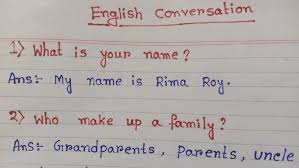 English Conversation
1) What is your name?
Ans:- My name is Rima Roy.
2) Who make up a family?
Ans:- Grandparents, Parents, uncle